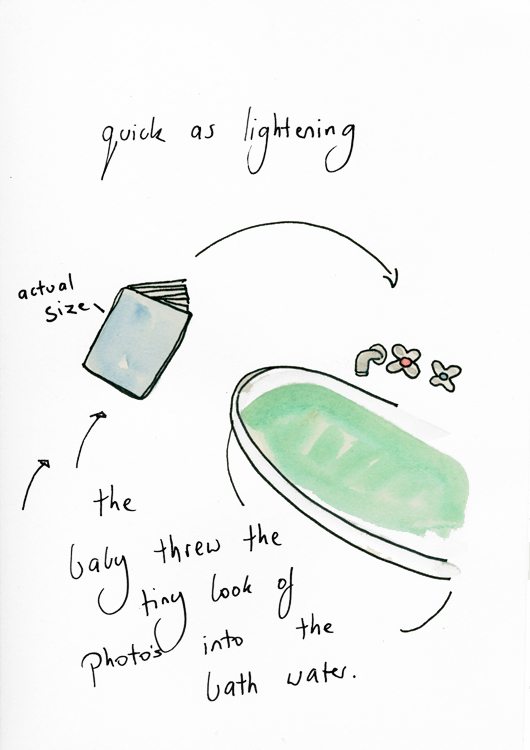 quick as lightening
actual
size
the
baby threw the
tiny book of
photo's into the
bath water.